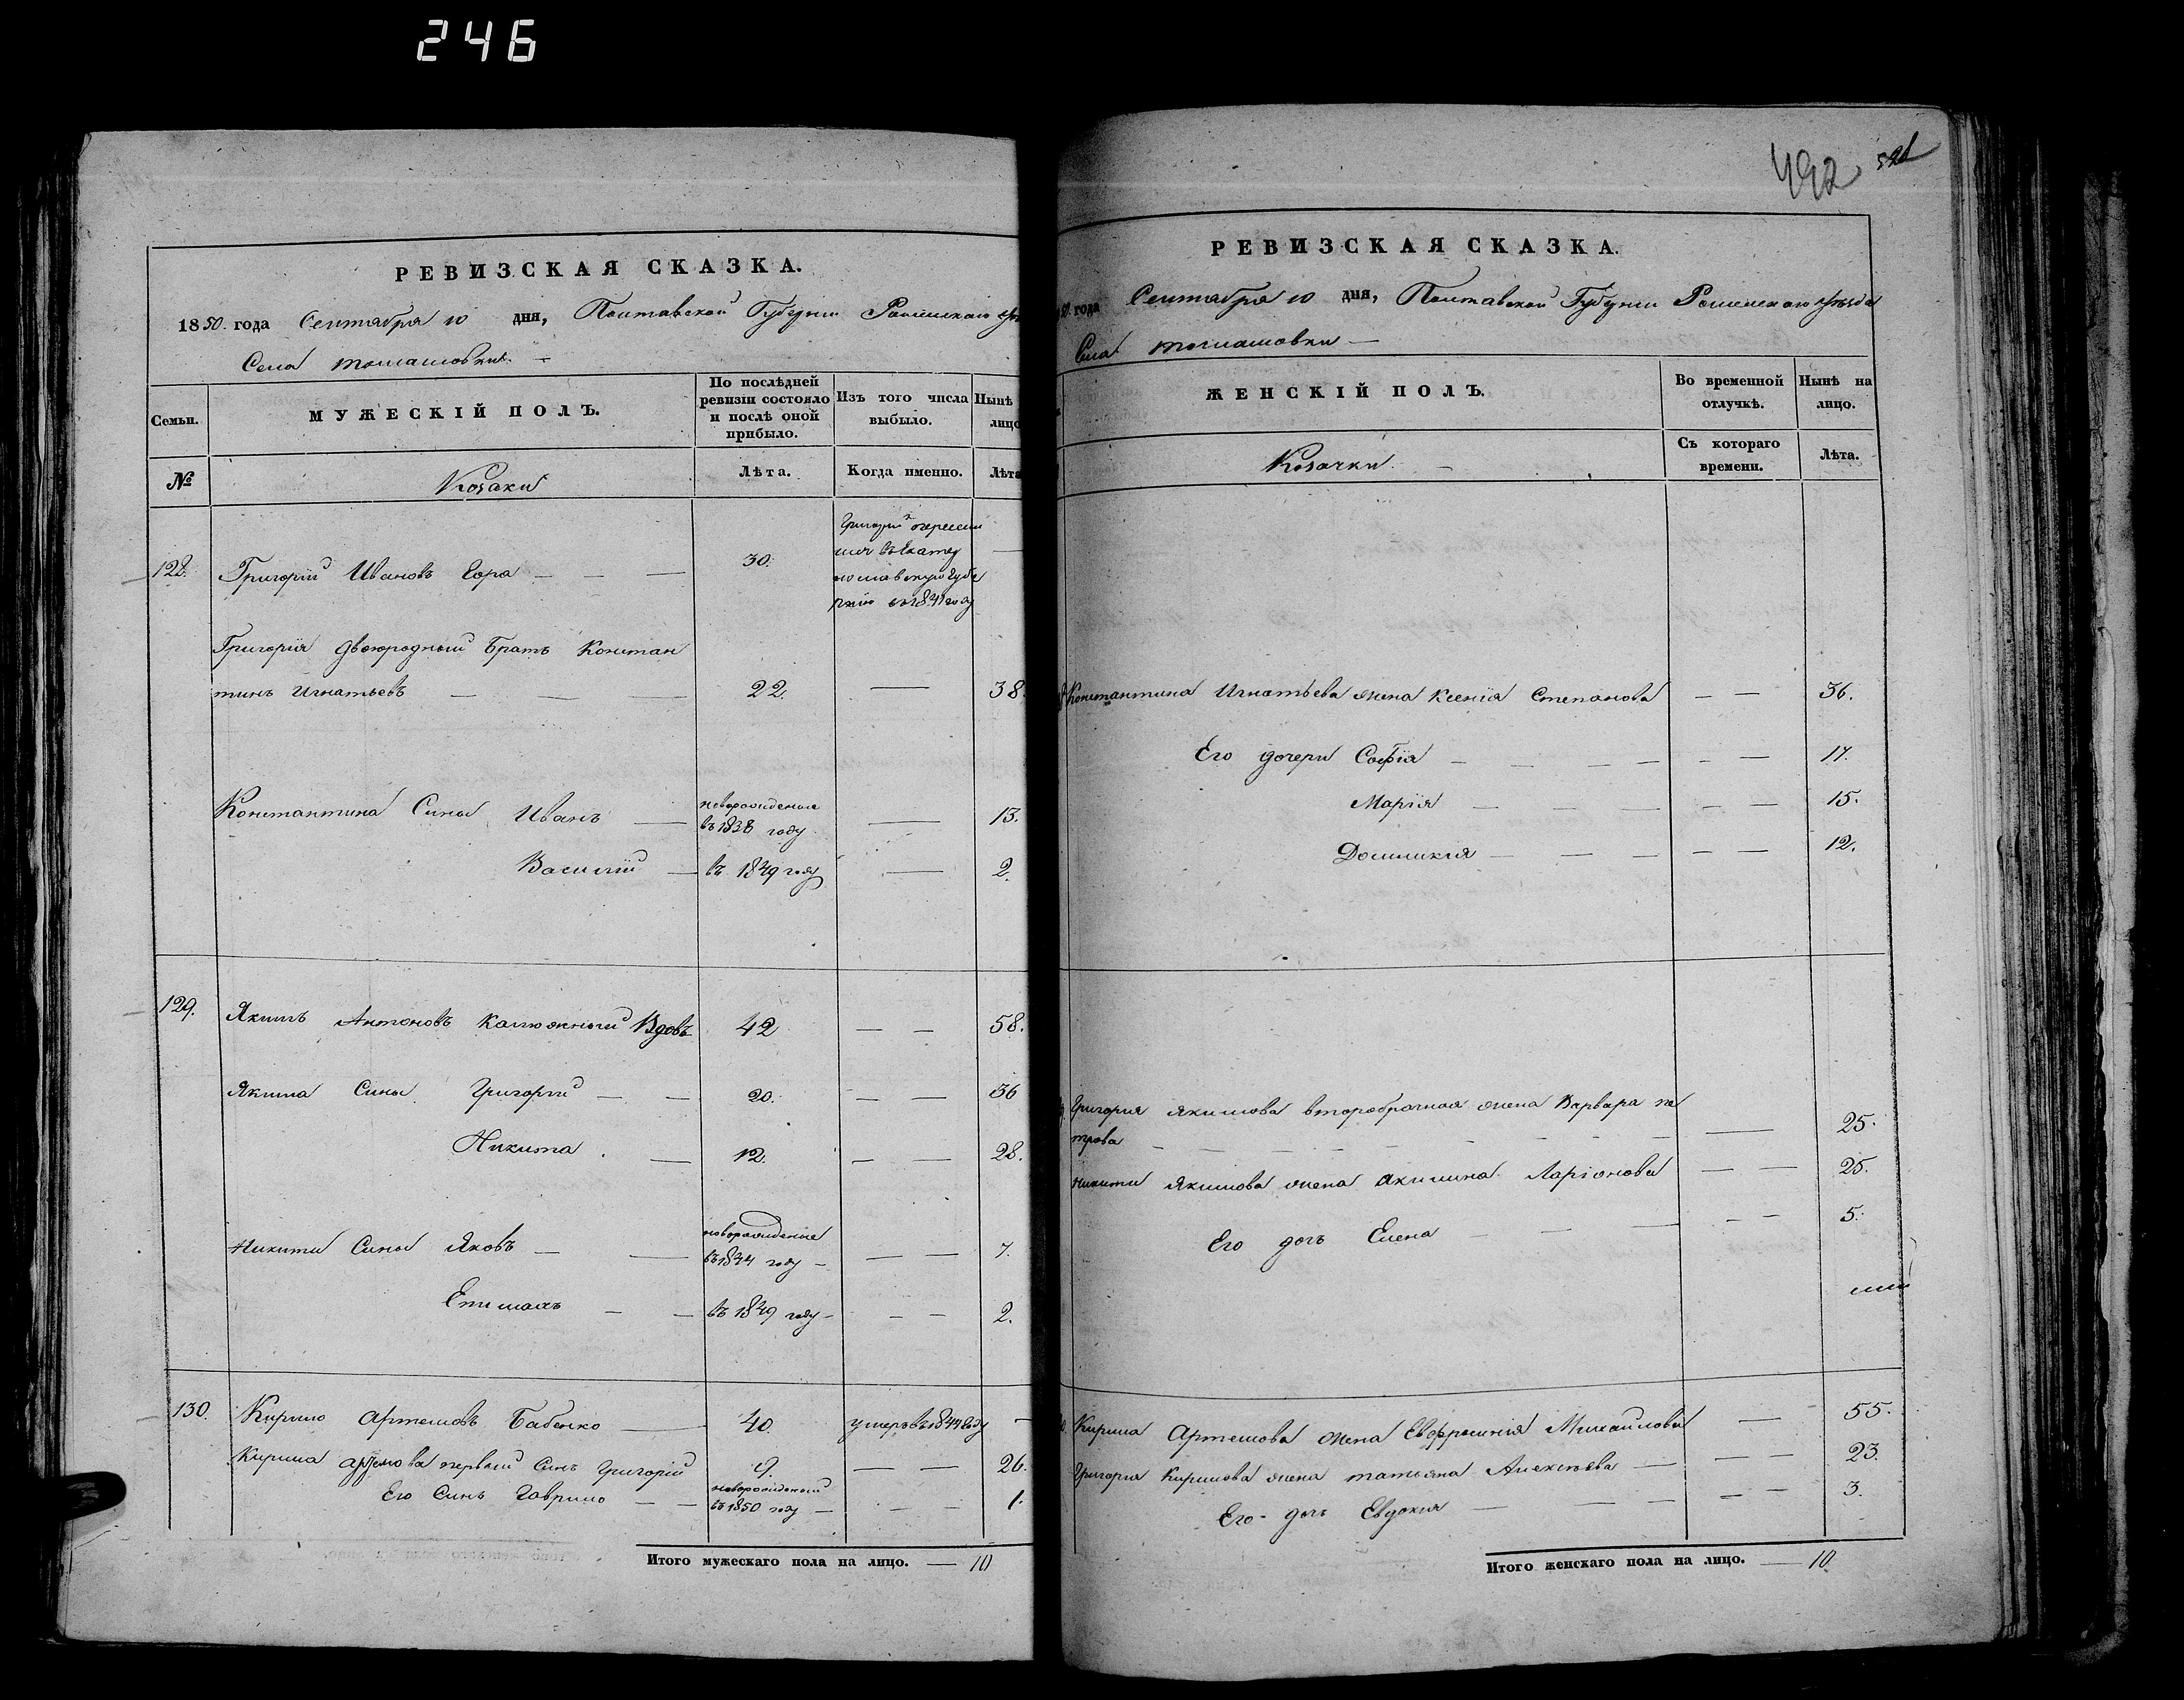 246
РЕВИЗСКАЯ СКАЗКА.
1850. года Сентября 10 дня, Полтавской Губернии Роменскаго
Села Томашовки. —
Семьи.
МУЖЕСКІЙ ПОЛЪ.
По послѣдней ревизіи состояло и послѣ оной прибыло.
Изъ того числа выбыло.
Нынѣ лицо
№
Козаки
Лѣта.
Когда именно.
Лѣта
128. Григорій Ивановъ 30. Григорій
въ Екатери
нославскую Губе
рнію въ 1841 году —
Григорія двоюродный Братъ Констан
тинъ Игнатьевъ — — — 22. — 38.
Константина Сины Иванъ — новорожденые
въ 1838 году — 13.
Василій — въ 1849 году — 2.
129. Якимъ Антоновъ Калюжный Вдовъ 42 — — 58.
Якима Сины Григорій — — 20. — — 36
Никита — 12. — — 28.
Никити Сины Яковъ — — новорожденые
въ 1844 году — — — 7.
— — въ 1849 году — — — 2.
130. Кирило Артемовъ Бабенко — 40. умеръ въ 1844 году —
Кирила Артемова первый Синъ Григорій 9. — — 26.
Его Синъ Гаврило — — новорожденый
въ 1850 году — — — 1.
Итого мужескаго пола на лицо. — 10
492
РЕВИЗСКАЯ СКАЗКА.
50. года Сентября 10 дня, Полтавской Губернии Роменскаго уѣзда
Села Томашовки —
ЖЕНСКІЙ ПОЛЪ.
Во временной отлучкѣ.
Нынѣ на лицо.
Козачки. —
Съ котораго времени.
Лѣта.
Константина Игнатьева жена Ксенія Степанова — — 36.
Его дочери Софія — — — — — — 17.
Марія — — — — — 15.
Домникія — — — — — 12.
Григорія Якимова второбрачная жена Варвара Пе
трова — — — — — — — — 25.
Никити Якимова жена Акилина Ларіонова — — 25.
Его дочъ Елена — — — — — 5.
Кирила Артемова жена Евфросинія Михайлова — 55.
Григорія Кирилова жена Татьяна Алексѣева — — — 23.
Его дочъ Евдокія — — — — — 3.
Итого женскаго пола на лицо. — 10.